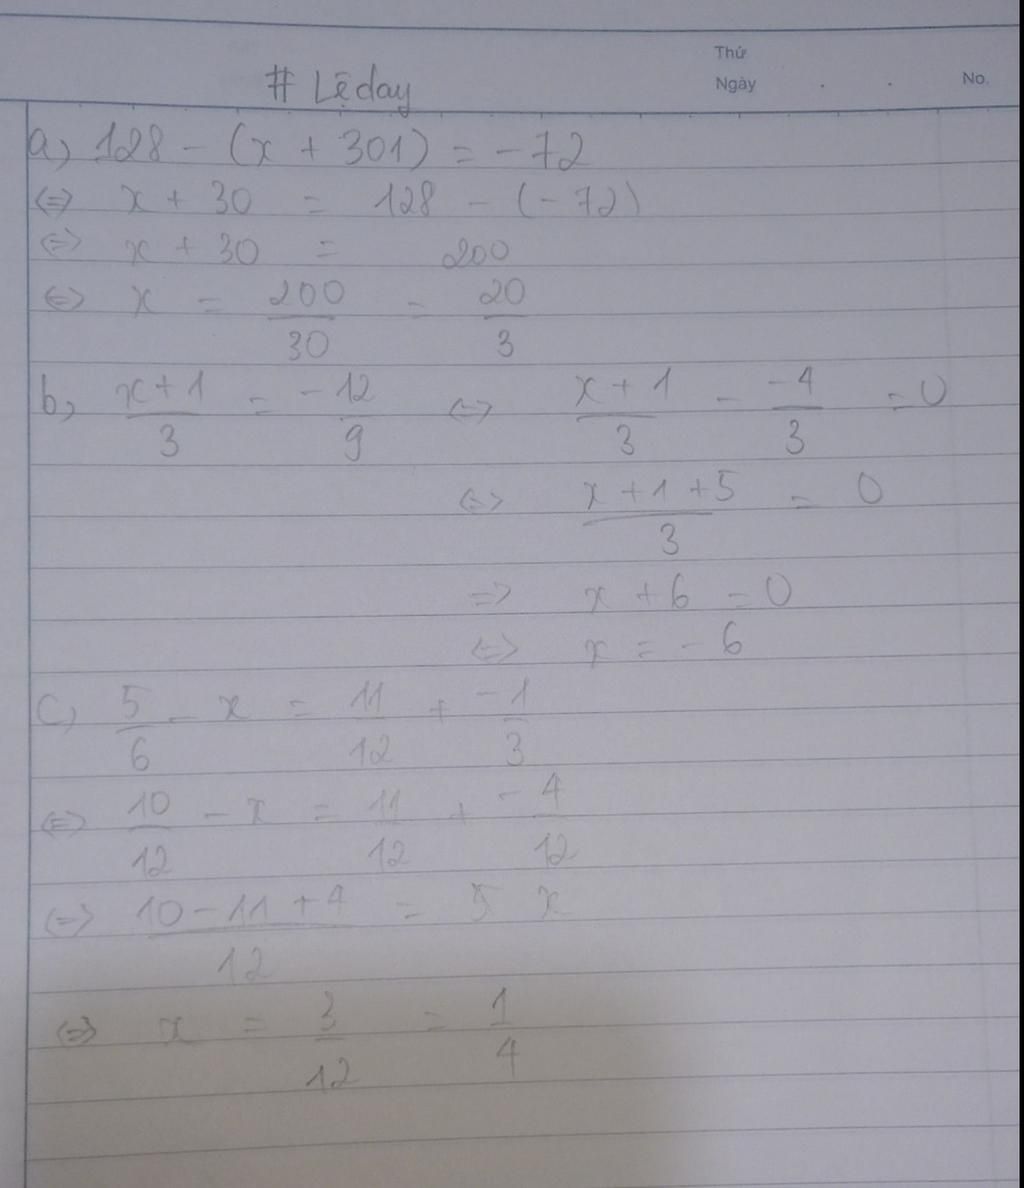 Thứ
# Lệday
Ngày . . No.
a, 128 - (x + 301) = -72
<=> x + 30 = 128 - (-72)
<=> x + 30 = 200
<=> x = 200/30 = 20/3
b, (x+1)/3 = -12/9 <=> (x+1)/3 - -4/3 = 0
<=> (x+1+5)/3 = 0
=> x + 6 = 0
<=> x = -6
c, 5/6 - x = 11/12 + -1/3
<=> 10/12 - x = 11/12 + -4/12
<=> (10-11+4)/12 = x
<=> x = 3/12 = 1/4